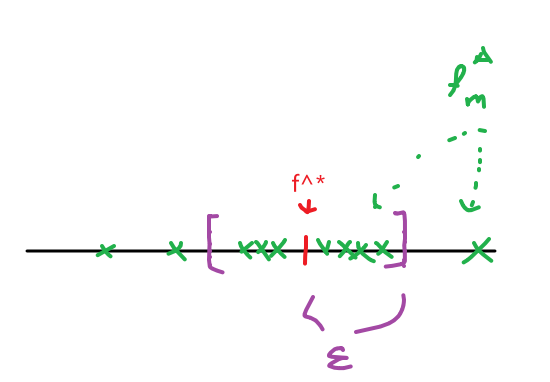 f^Δ_m
f^*
[ ]
ε